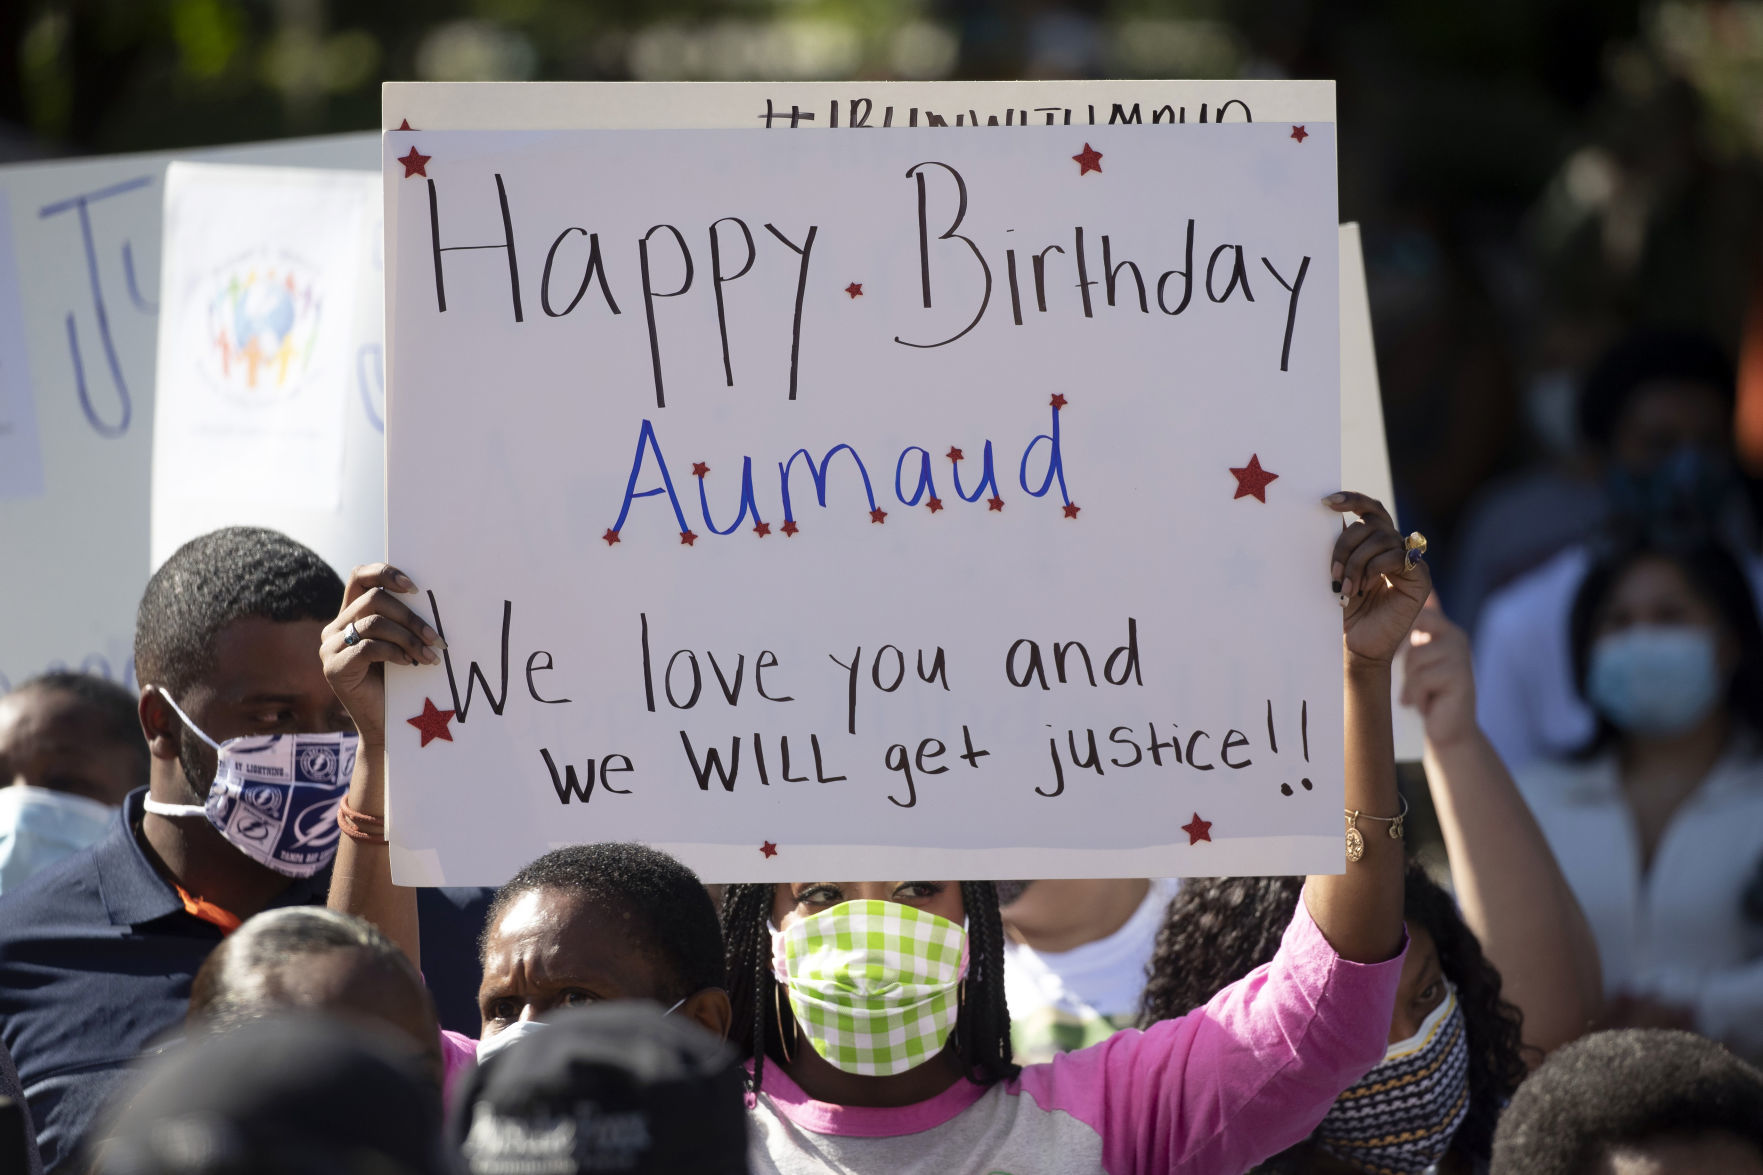 #IRUNWITHMAUD
Happy Birthday
Aumaud
We love you and
we WILL get justice!!
Ju
BAY LIGHTNING
TAMPA BAY